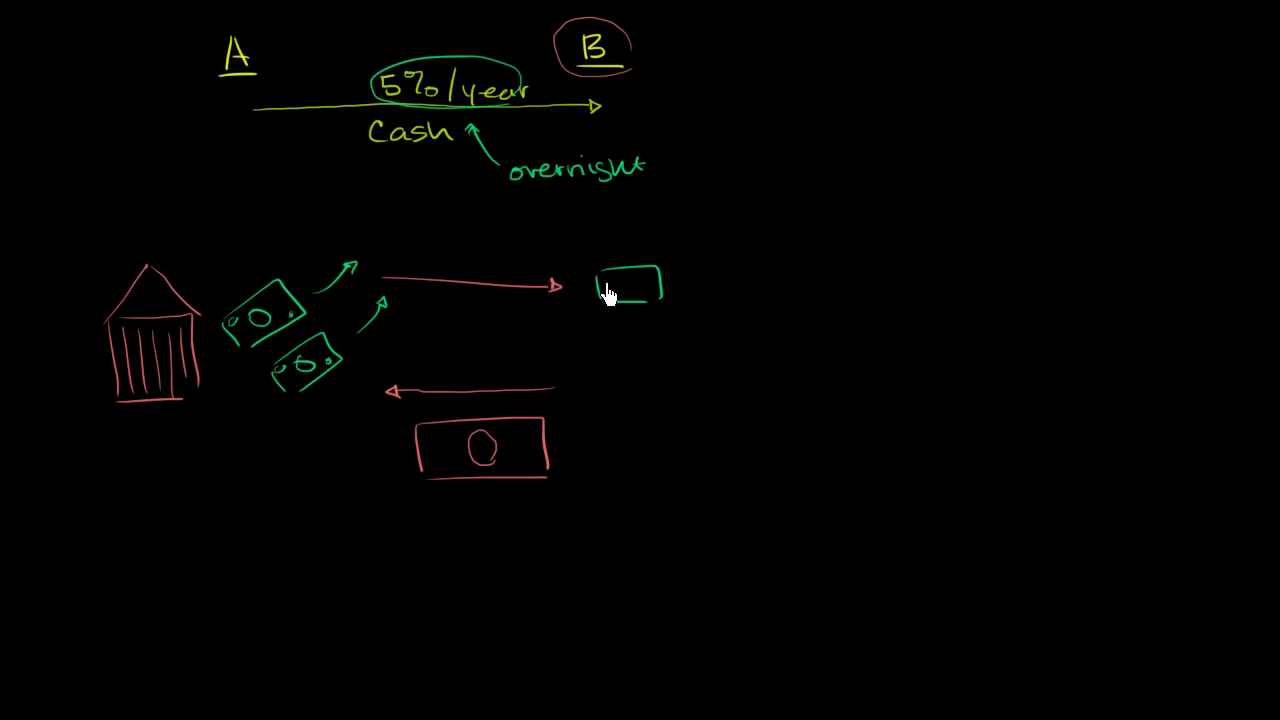 A
B
5%/year
Cash
overnight